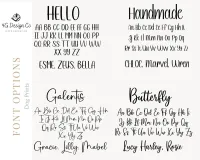 YG Design Co
FONT OPTIONS
HELLO
AA BB CC DD EE FF GG HH
II JJ KK LL MM NN OO PP
QQ RR SS TT UU VV WW
XX YY ZZ
ESME, ZEUS, BELLA
Handmade
Aa Bb Cc Dd Ee Ff Gg Hh Ii
Jj Kk Ll Mm Nn Oo Pp Qq
Rr Ss Tt Uu Vv Ww Xx Yy Zz
CHLOE, Marvel, Wren
Galentis
Aa Bb Cc Dd Ee Ff Gg Hh
Ii Jj Kk Ll Mm Nn Oo Pp
Qq Rr Ss Tt Uu Vv Ww
Xx Yy Zz
Gracie, Lilly, Mabel
Butterfly
Aa Bb Cc Dd Ee Ff Gg Hh Ii
Jj Kk Ll Mm Nn Oo Pp Qq
Rr Ss Tt Uu Vv Ww Xx Yy Zz
Lucy, Harley, Rosie